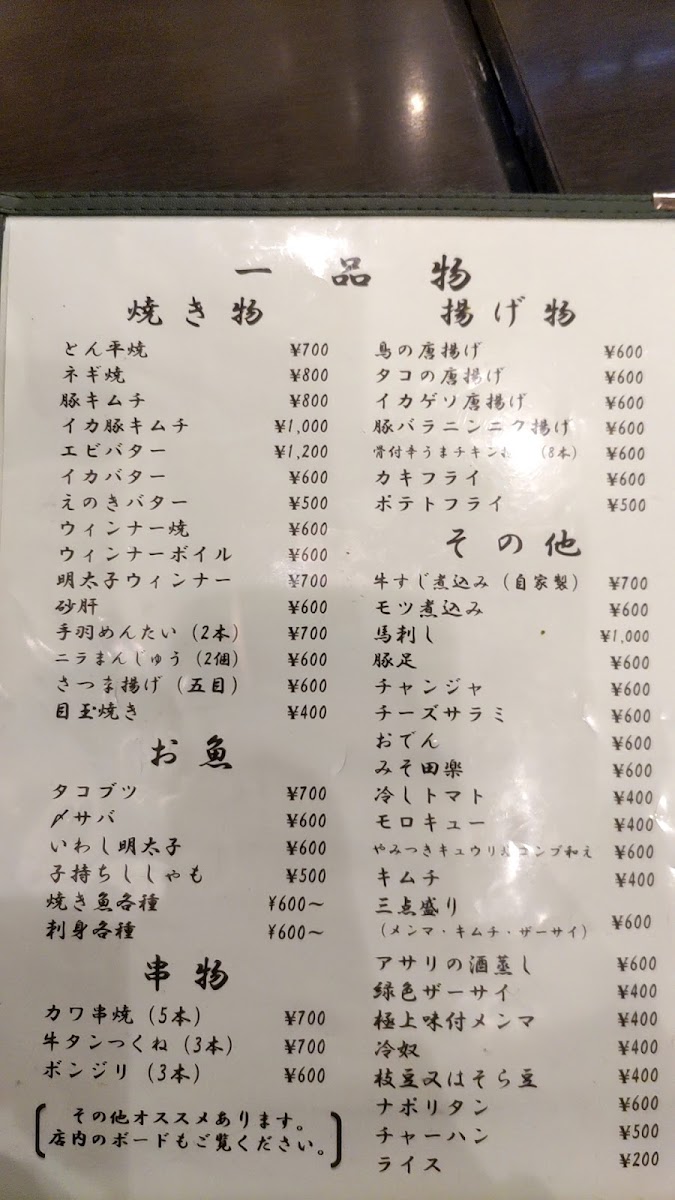 一品物
焼き物
とん平焼 ¥700
ネギ焼 ¥800
豚キムチ ¥800
イカ豚キムチ ¥1,000
エビバター ¥1,200
イカバター ¥600
えのきバター ¥500
ウィンナー焼 ¥600
ウィンナーボイル ¥600
明太子ウィンナー ¥700
砂肝 ¥600
手羽めんたい（2本） ¥700
ニラまんじゅう（2個） ¥600
さつま揚げ（五目） ¥600
目玉焼き ¥400
お魚
タコブツ ¥700
〆サバ ¥600
いわし明太子 ¥600
子持ちししゃも ¥500
焼き魚各種 ¥600〜
刺身各種 ¥600〜
串物
カワ串焼（5本） ¥700
牛タンつくね（3本） ¥700
ボンジリ（3本） ¥600
その他オススメあります。
店内のボードもご覧ください。
揚げ物
鳥の唐揚げ ¥600
タコの唐揚げ ¥600
イカゲソ唐揚げ ¥600
豚バラニンニク揚げ ¥600
骨付辛うまチキン （8本） ¥600
カキフライ ¥600
ポテトフライ ¥500
その他
牛すじ煮込み（自家製） ¥700
モツ煮込み ¥600
馬刺し ¥1,000
豚足 ¥600
チャンジャ ¥600
チーズサラミ ¥600
おでん ¥600
みそ田楽 ¥600
冷しトマト ¥400
モロキュー ¥400
やみつきキュウリ コンブ和え ¥600
キムチ ¥400
三点盛り ¥600
（メンマ・キムチ・ザーサイ）
アサリの酒蒸し ¥600
緑色ザーサイ ¥400
極上味付メンマ ¥400
冷奴 ¥400
枝豆又はそら豆 ¥400
ナポリタン ¥600
チャーハン ¥500
ライス ¥200